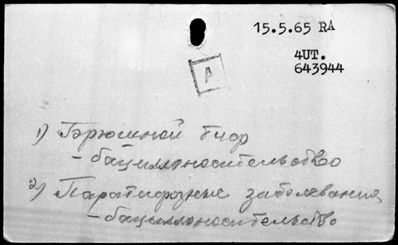 15.5.65 RA
4UT.
643944
A
1) Брюшной тиф
- бациллоносительство
2) Паратифозные заболевания
- бациллоносительство